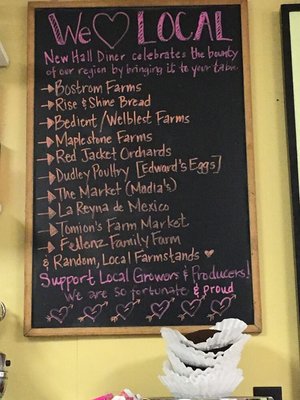 We ♡ LOCAL
New Hall Diner celebrates the bounty
of our region by bringing it to your table.
→ Bostrom Farms
→ Rise & Shine Bread
→ Bedient / Welblest Farms
→ Maplestone Farms
→ Red Jacket Orchards
→ Dudley Poultry [Edward's Eggs]
→ The Market (Madia's)
→ La Reyna de Mexico
→ Tomion's Farm Market
→ Fellenz Family Farm
& Random, Local Farmstands ♥
Support Local Growers & Producers!
We are so fortunate & proud